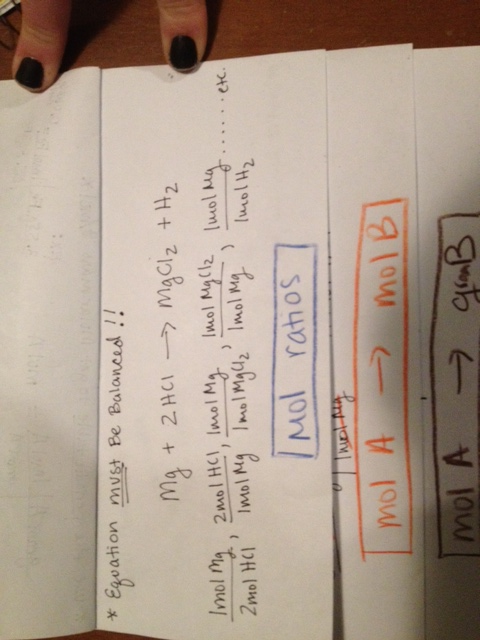 * Equation must Be Balanced!!
Mg + 2HCl → MgCl2 + H2
1mol Mg/2mol HCl, 2mol HCl/1mol Mg, 1mol Mg/1mol MgCl2, 1mol MgCl2/1mol Mg, 1mol Mg/1mol H2 ...... etc.
mol ratios
1mol Mg
mol A → mol B
mol A → gram B